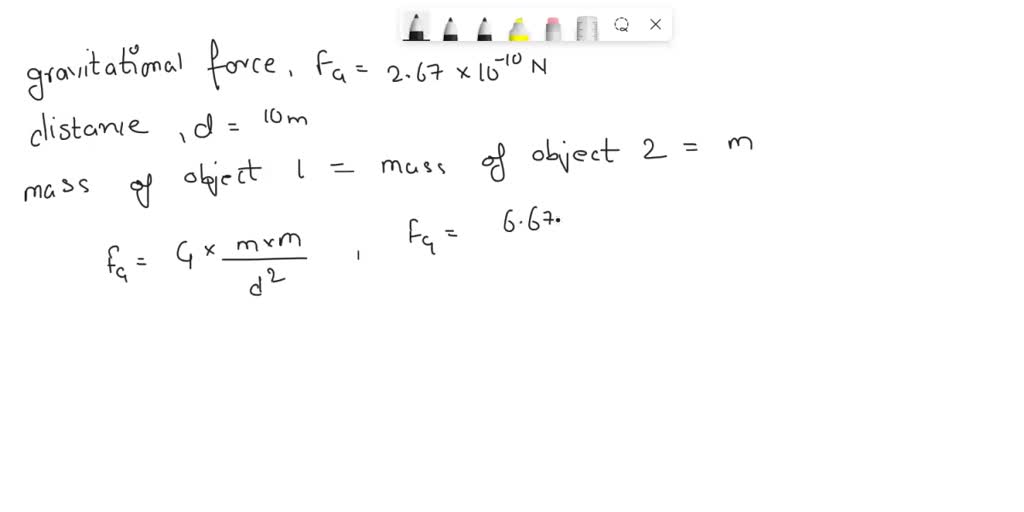 gravitational force, FG = 2.67 × 10⁻¹⁰ N
distance, d = 10m
mass of object 1 = mass of object 2 = m
FG = G × m×m / d² , FG = 6.67.